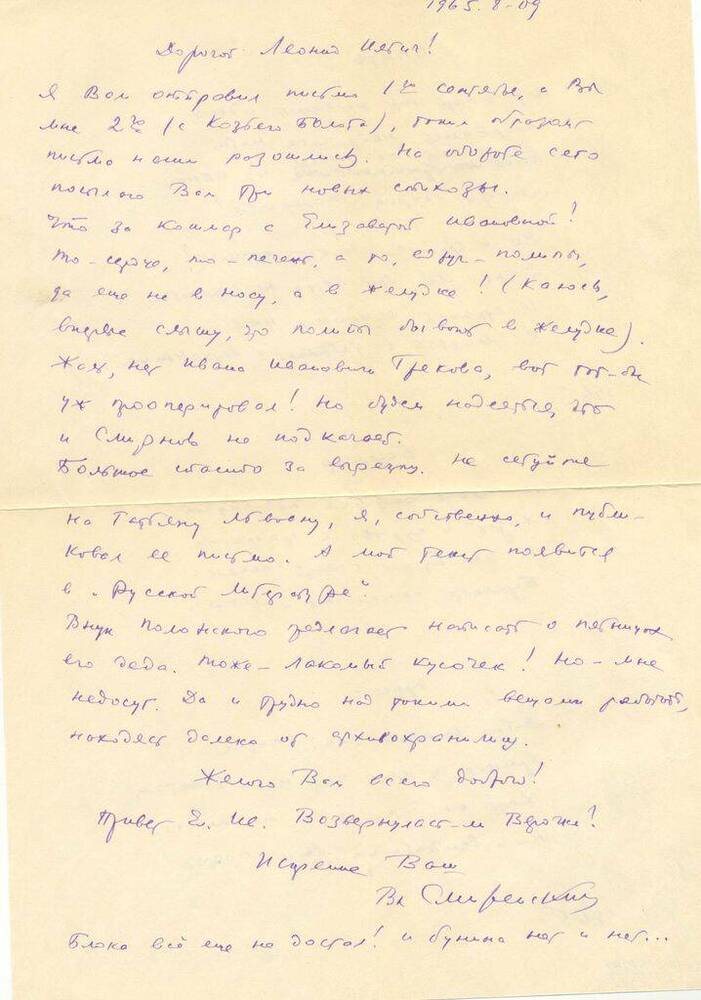 1965. 8-09
Дорогой Леонид Ильич!
Я Вам отправил письмо 1го сентября, а Вы
мне 2го (с Козьего Болота), таким образом
письма наши разошлись. На обороте сего
посылаю Вам три новых
Что за кошмар с Елизаветой Ивановной!
То - сердце, то - печень, а то, вдруг - полипы,
да еще не в носу, а в желудке! (Каюсь,
впервые слышу, что полипы бывают в желудке).
Жаль, нет Ивана Ивановича Грекова, вот тот-бы
уж прооперировал! Но будем надеяться, что
и Смирнов не подкачает.
Большое спасибо за вырезку. Не сетуйте
на Татьяну Львовну, я, собственно, и публи-
ковал ее письмо. А мой текст появится
в „Русской литературе".
Внук Полонского предлагает написать о пятницах
его деда. Тоже - лакомый кусочек! Но - мне
недосуг. Да и трудно над такими вещами работать,
находясь далеко от архивохранилищ.
Желаю Вам всего доброго!
Привет Ел. Ив. Возвернулась-ли Верочка?
Искренне Ваш
Вл Смиренский
Блока всё еще не достал! и Бунина нет и нет...